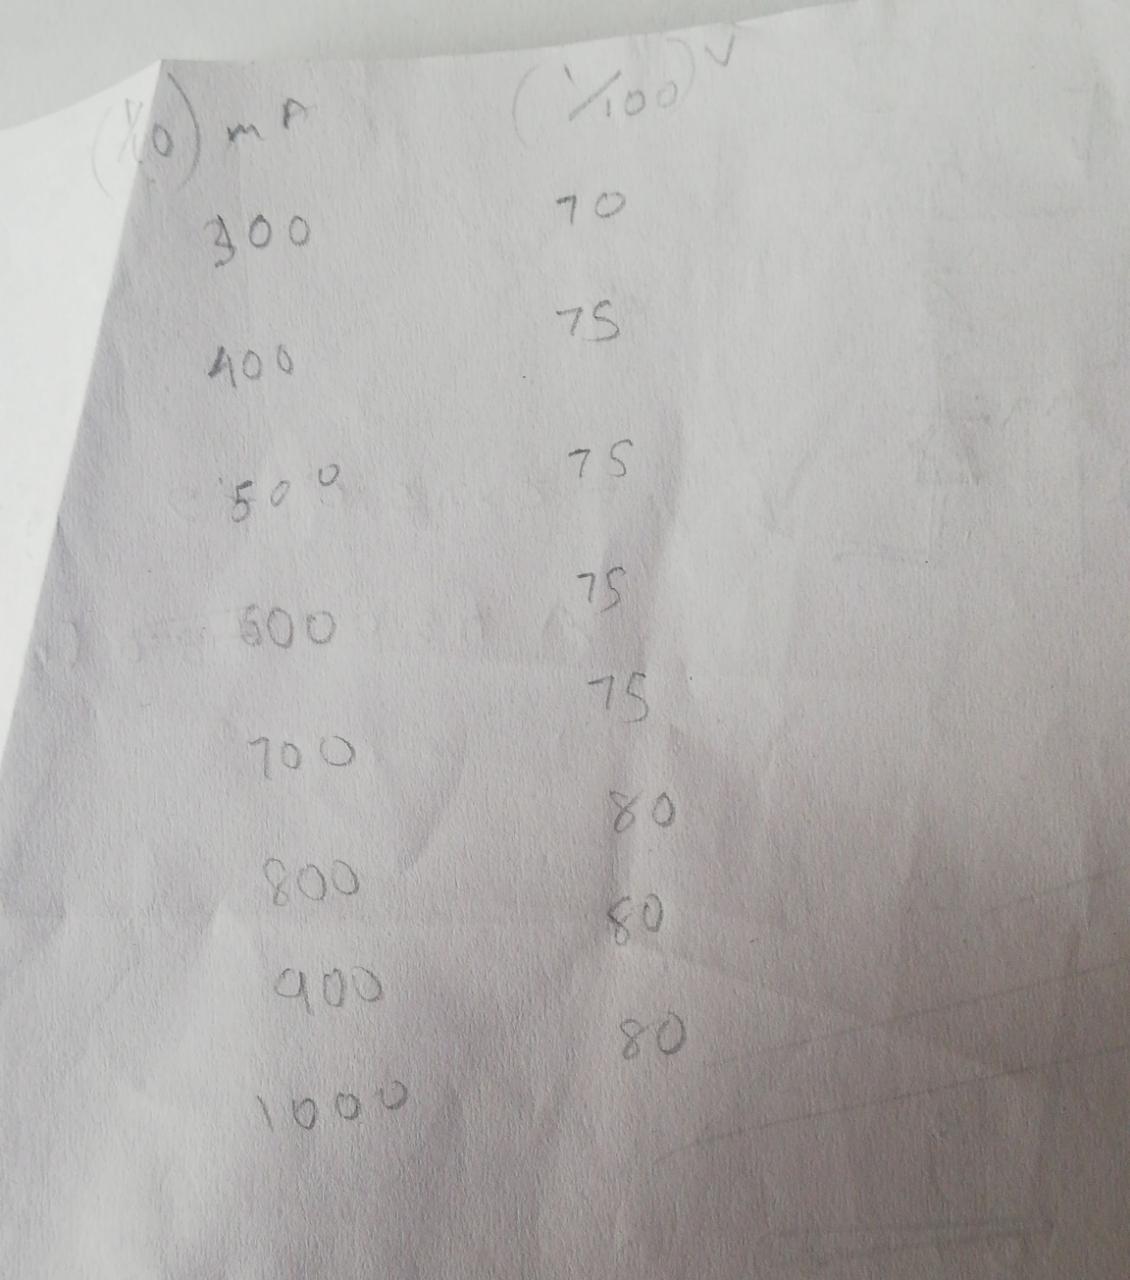 (1/10) mA (1/100) V
300 70
400 75
500 75
600 75
700 75
800 80
900 80
1000 80